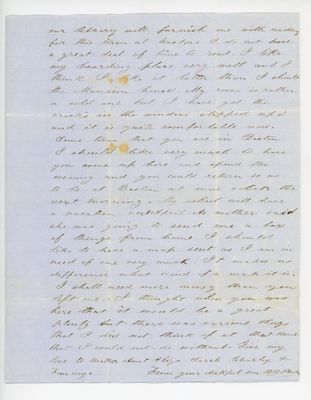 our library will furnish me with reading
for this term at least as I do not have
a great deal of time to read. I like
my boarding place very well and I
think I like it better than I should
the Mansion house. My room is rather
a cold one but I have got the
cracks in the window stopped up
and it is quite comfortable now.
Some time that you are in Boston
I should like very much to have
you come up here and spend the
evening and you could return so as
to be at Boston at nine o clock the
next morning. My school will have
a vacation next April. As mother said
she was going to send me a box
of things from home I should
like to have a map sent as I am in
need of one very much. It makes no
difference what kind of a map it is.
I shall need more money than you
left me. I thought when you was
here that it would be a great
plenty but there was various things
that I did not think of at that time
that I could not do without. Give my
love to Mother Aunt Eliza Sarah Charley &
Fanny. From your dutiful son